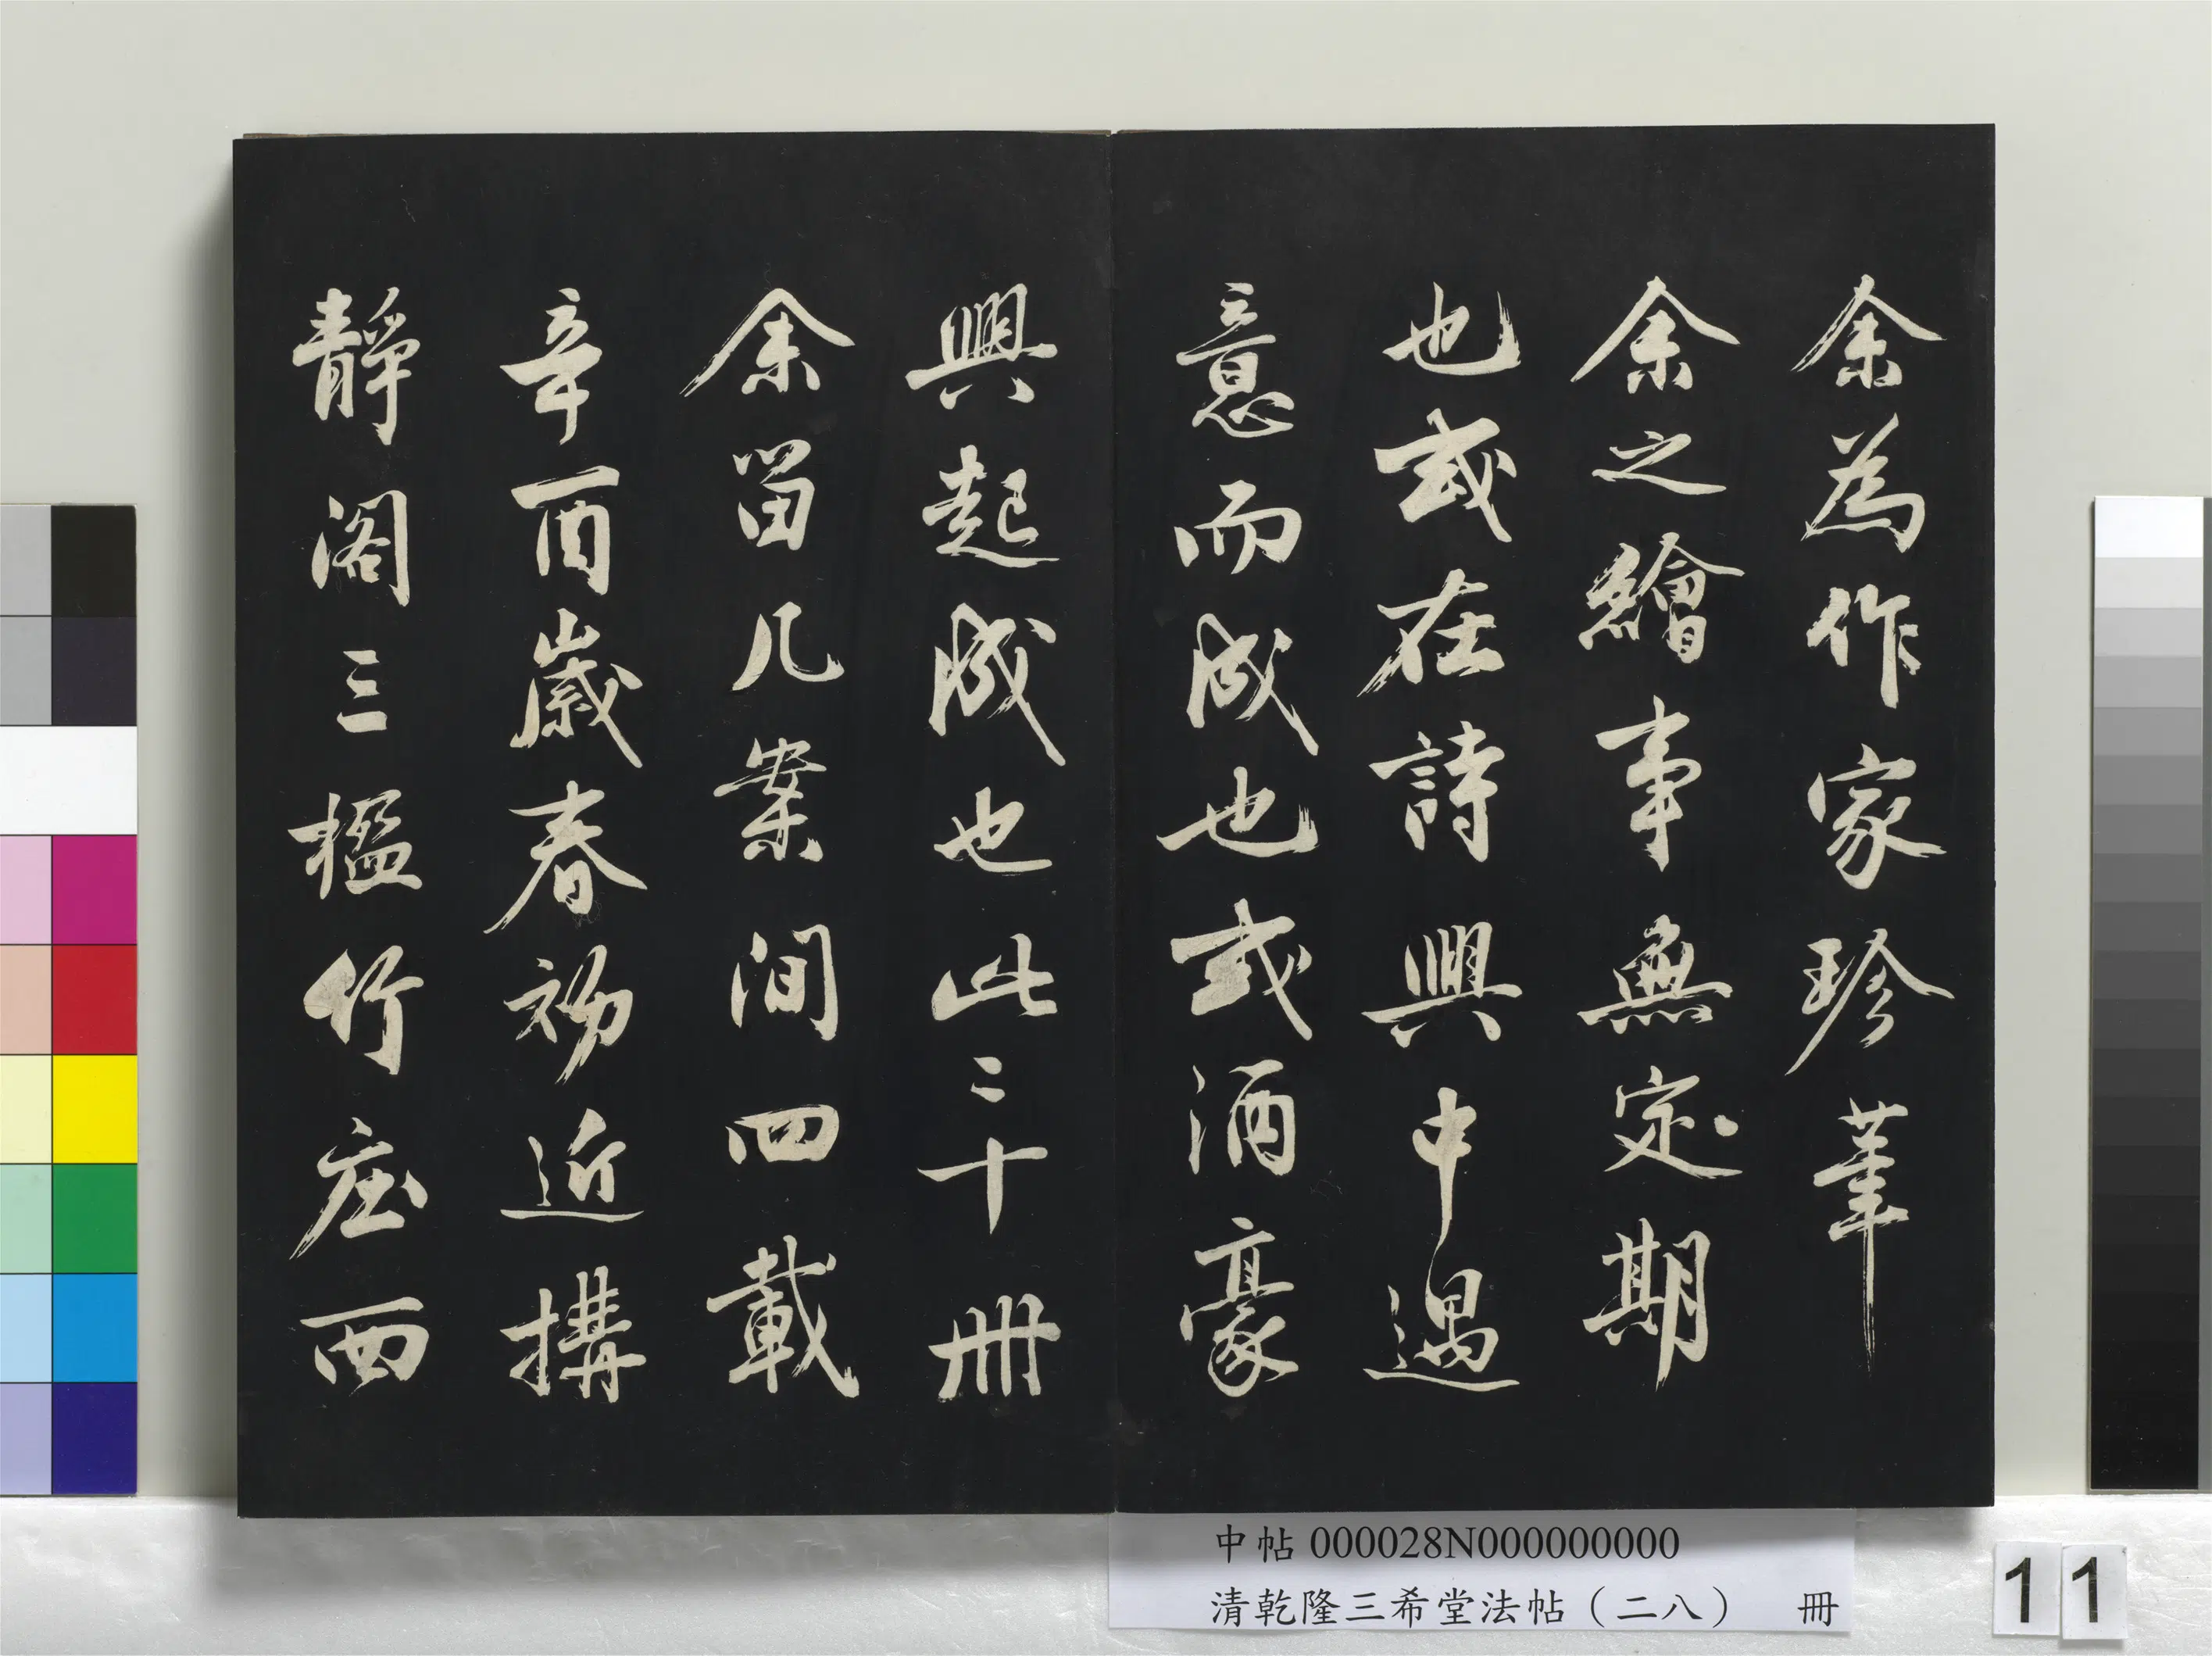 余為作家珍筆
余之繪事無定期
也或在詩興中遇
意而成也或酒豪
興起成也此三十冊
余留几案間四載
辛酉歲春初近搆
靜閣三楹竹庄西
中帖000028N000000000
清乾隆三希堂法帖（二八） 冊
11